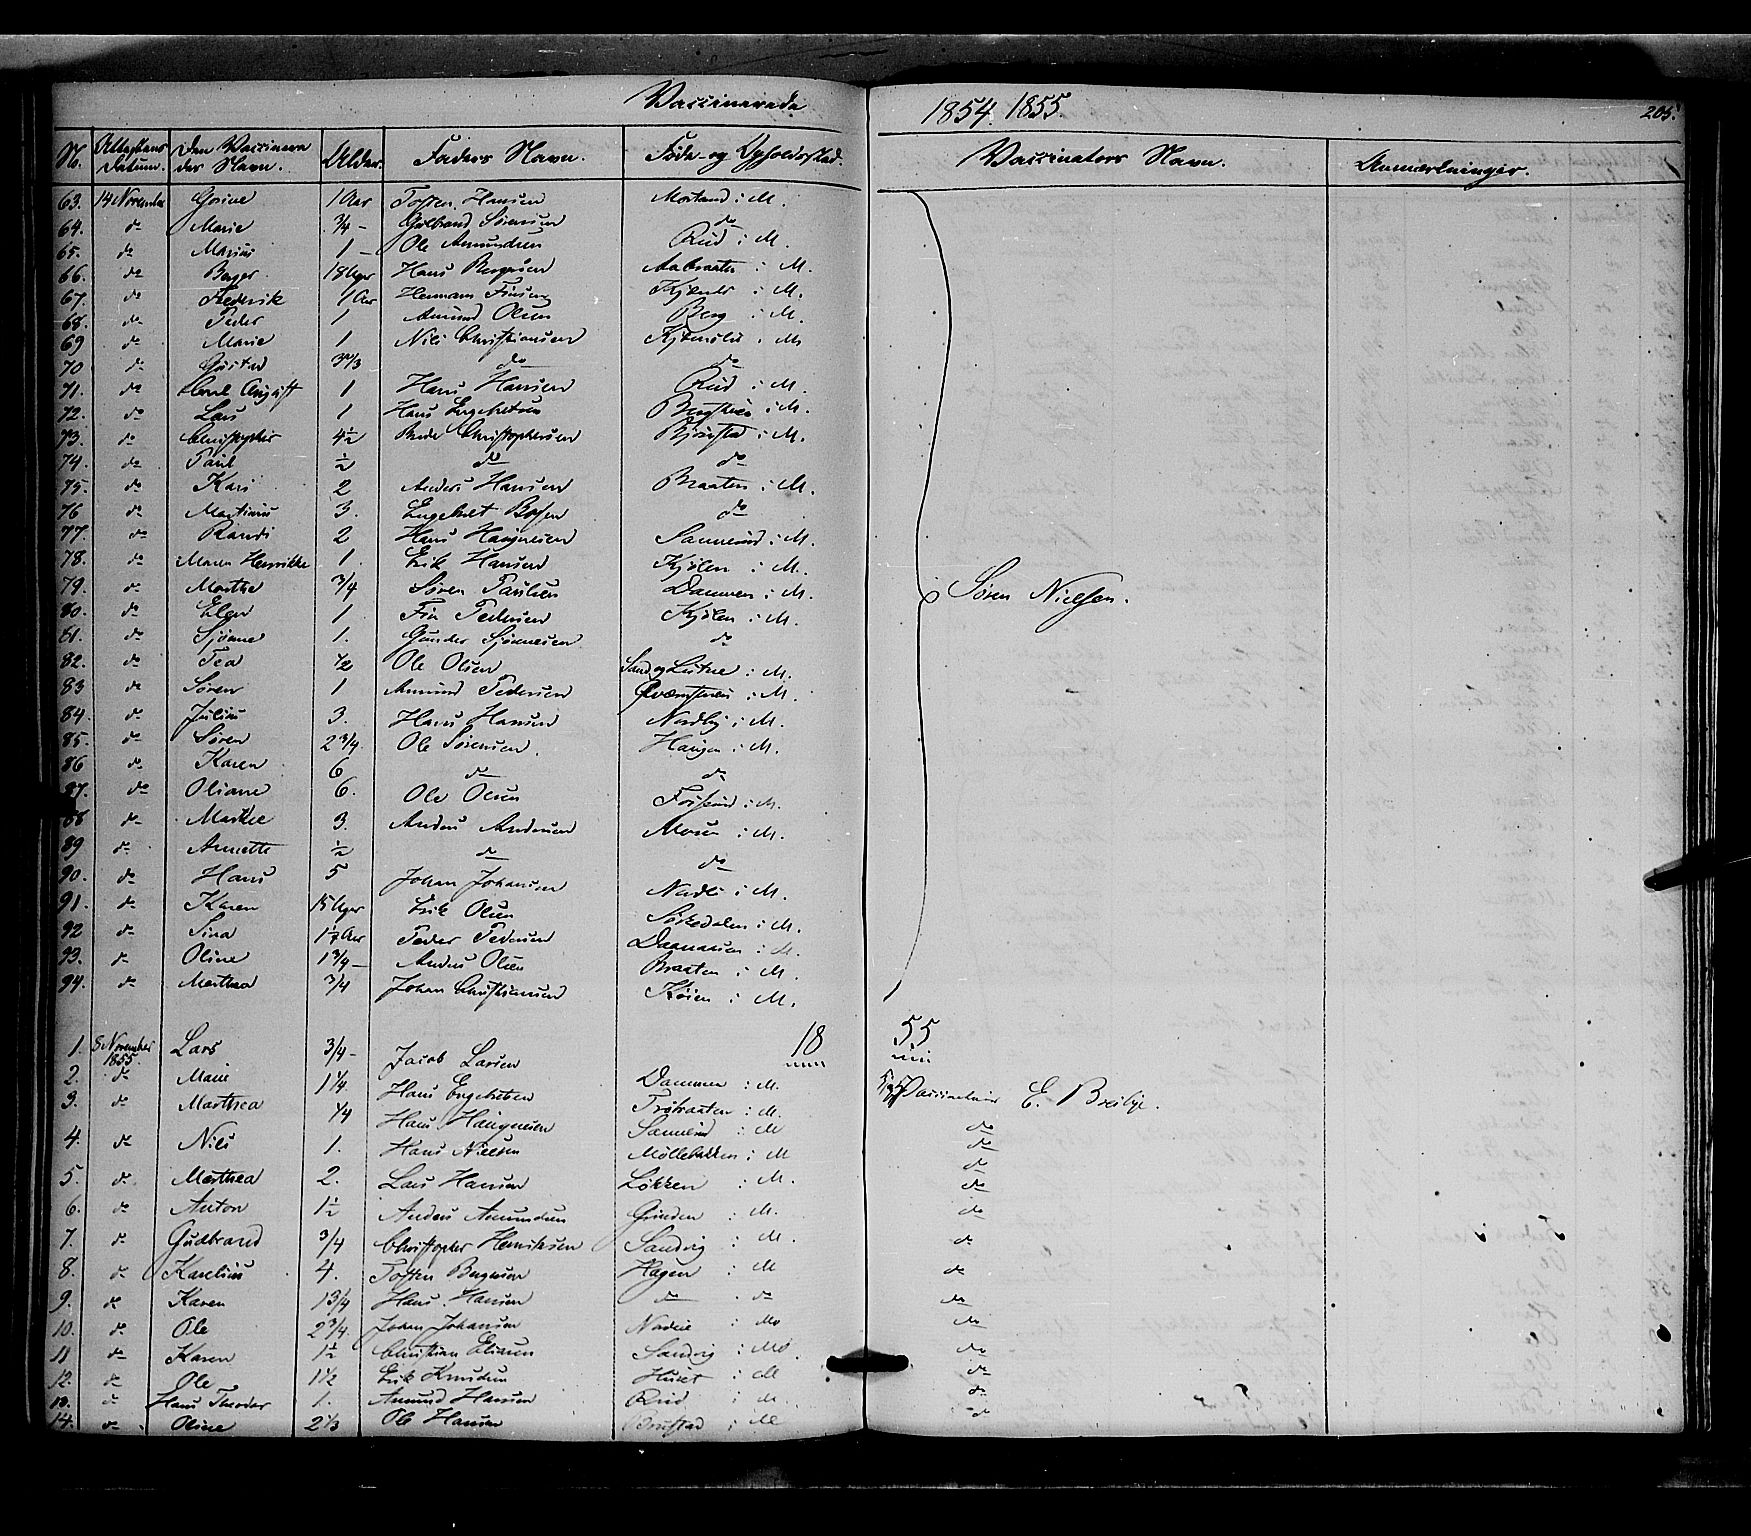 Vaccinerede 1854. 1855. 205.
No. Attestens Datum. Den Vaccineredes Navn. Alder. Faders Navn. Føde- og Opholdssted. Vaccinators Navn. Anmærkninger.
63. 14 November Gorine 1 Aar Tosten Hansen i M.
64. do Marie 3/4 - Gulbrand Sørensen do
65. do Marius 1 - Ole Amundsen Rud i M.
66. do Berger 18 Uger Hans Bergersen Aabraaten i M.
67. do Frederik 1 Aar Hermann i M.
68. do Peder 1 Amund Olsen Berg i M.
69 do Marie 1 Nils Christiansen i M
70 do Gustav do do
71. do Carl August 1 Hans Hansen Rud i M.
72. do Lars 1 Hans Engebretsen i M.
73. do Christopher 4 1/2 Christophersen Bjørnstad i M.
74. do Paul 1/2 do do
75. do Kari 2 Anders Hansen Braaten i M.
76 do Martinus 3. Engebret Boesen do
77. do Randi 2 Hans Haagensen Sannerud i M.
78. do Maren Henrikke 1. Erik Hansen Kjølen i M.
79. do Marthe 3/4 Søren Paulsen Dammen i M. Søren Nielsen.
80. do Elen 1 Pedersen Kjølen i M.
81. do Sjønne 1. Gunder Sjønnesen do
82. do Tea 1/2 Ole Olsen i M.
83 do Søren 1 Amund Pedersen i M.
84. do Julius 3. Hans Hansen Nordby i M.
85. do Søren 2 3/4. Ole Sørensen. Haugen i M.
86 do Karen 6 do do
87. do Oliane 6. Ole Olsen Fosserud i M.
88 do Marthe 3. Anders Andersen Moseen i M.
89 do Annette 1/2 do do
90. do Hans 5 Johan Johansen i M.
91. do Karen 15 Uger Erik Olsen Sørkedalen i M.
92 do Sina Aar Peder Pedersen i M.
93. do Oline 1 3/4 - Anders Olsen Braaten i M.
94. do Marthea 3/4 Johan Christiansen Køien i M.
18 55
1. 8 November 1855. Lars 3/4 - Jacob Larsen Dammen i M. Vaccinateur E. Breibye.
2. do Marie 1 1/4. Hans Engebretsen i M. do
3. do Marthea 1/4 Hans Haugnesen Sannerud i M do
4. do Nils 1. Hans Nielsen Møllebakken i M do
5. do Marthea 2. Lars Hansen Løkken i M. do
6. do Anton 1 1/2 Anders Amundsen Grinden i M. do
7. do Gudbrand 3/4 Christopher Henriksen Sandvig i M. do
8. do Karelius 4. Tosten Bergersen Hagen i M do
9. do Karen 1 3/4 Hans Hansen do do do
10. do Ole 2 3/4. Johan Johansen do
11 do Karen 1 1/2 Christian Eliasen Sandvig i Mo. do
12. do Ole 1 1/2 Erik Knudsen Huset i M do
13. do Hans Theodor 1. Amund Hansen Rud i M. do
14. do Oline 2 1/3 Ole Hansen i M do